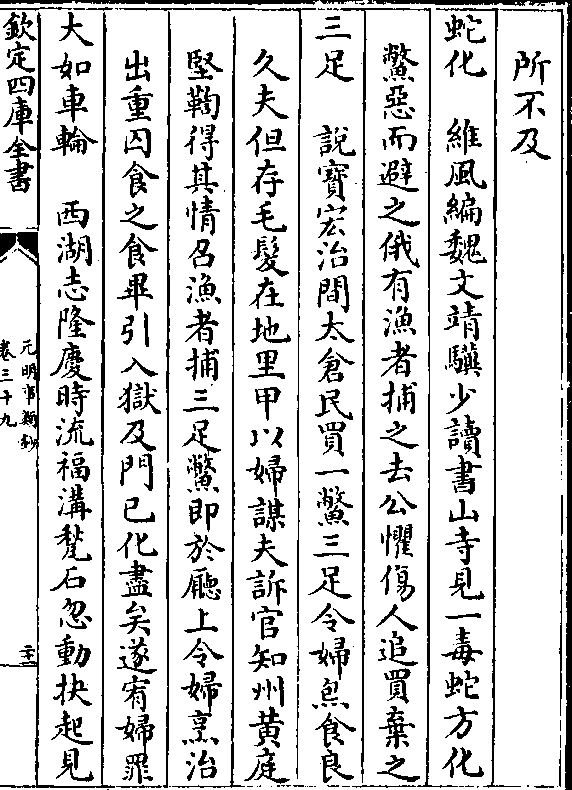 所不及
蛇化　維風編魏文靖驥少讀書山寺見一毒蛇方化
鱉惡而避之俄有漁者捕之去公懼傷人追買棄之
三足　說寶宏治間太倉民買一鱉三足令婦烹食良
久夫但存毛髮在地里甲以婦謀夫訴官知州黄庭
堅鞫得其情召漁者捕三足鱉即於廳上令婦烹治
出重囚食之食畢引入獄及門已化盡矣遂宥婦罪
大如車輪　西湖志隆慶時流福溝甃石忽動抉起見
欽定四庫全書
元明事類鈔
卷三十九